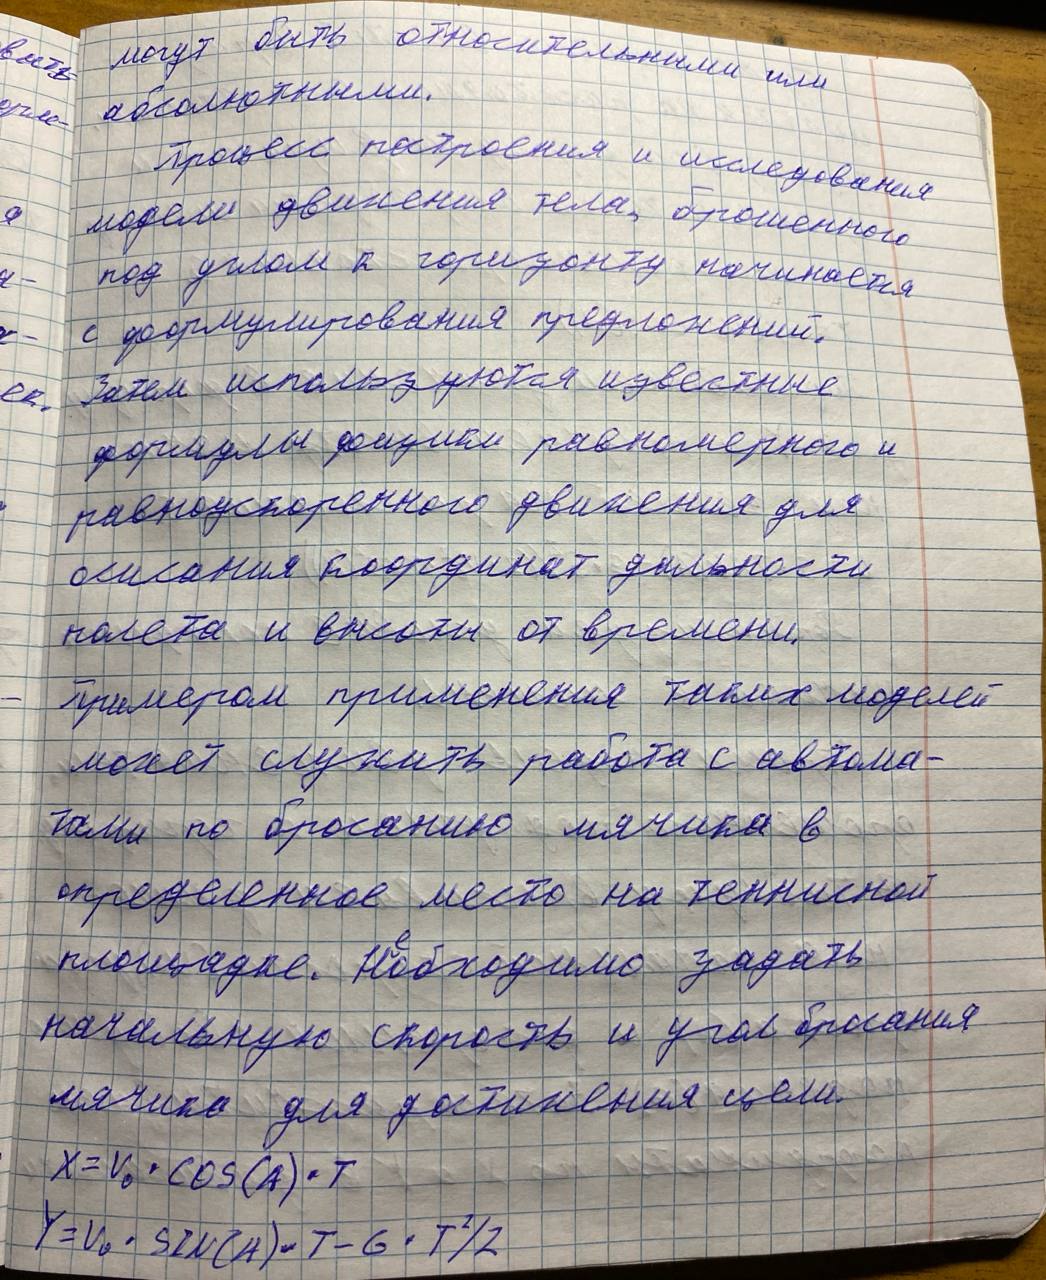 могут быть относительными или
абсолютными.
Процесс построения и исследования
модели движения тела, брошенного
под углом к горизонту начинается
с формулирования предложений.
Затем используются известные
формулы физики равномерного и
равноускоренного движения для
описания координат дальности
полета и высоты от времени.
Примером применения таких моделей
может служить работа с автома-
тами по бросанию мячика в
определенное место на теннисной
площадке. Необходимо задать
начальную скорость и угол бросания
мячика для достижения цели.
X=V₀·COS(A)·T
Y=V₀·SIN(A)·T-G·T²/2